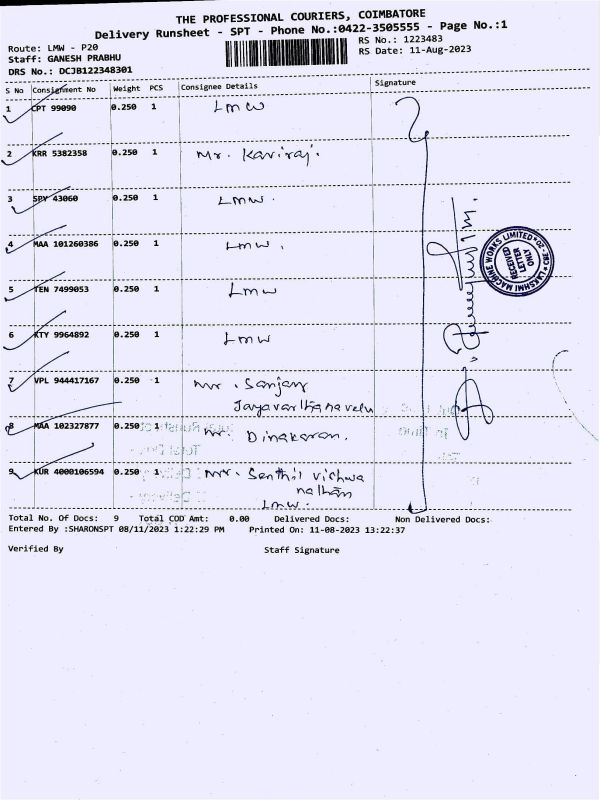 THE PROFESSIONAL COURIERS, COIMBATORE
Delivery Runsheet - SPT - Phone No.:0422-3505555 - Page No.:1
Route: LMW - P20
RS No.: 1223483
Staff: GANESH PRABHU
RS Date: 11-Aug-2023
DRS No.: DCJB122348301
S No Consignment No Weight PCS Consignee Details Signature
1 CPT 99090 0.250 1 LMW
2 KRR 5382358 0.250 1 Mr. Kaviraj.
3 SPY 43060 0.250 1 LMW.
4 MAA 101260386 0.250 1 LMW.
LAKSHMI MACHINE WORKS LIMITED
RECEIVED
LETTER
ONLY
5 TEN 7499053 0.250 1 LMW
6 KTY 9964892 0.250 1 LMW
7 VPL 944417167 0.250 1 Mr. Sanjay
Jayavarthanavelu
8 MAA 102327877 0.250 1 Mr. Dinakaran.
9 KUR 4000106594 0.250 1 Mr. Senthil vishwa
nathan
LMW.
Total No. Of Docs: 9 Total COD Amt: 0.00 Delivered Docs: Non Delivered Docs:
Entered By :SHARONSPT 08/11/2023 1:22:29 PM Printed On: 11-08-2023 13:22:37
Verified By Staff Signature